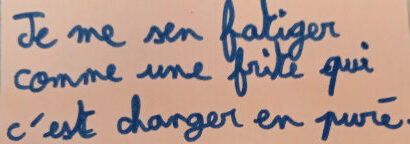 Je me sen fatiger
comme une frite qui
c'est changer en puré.